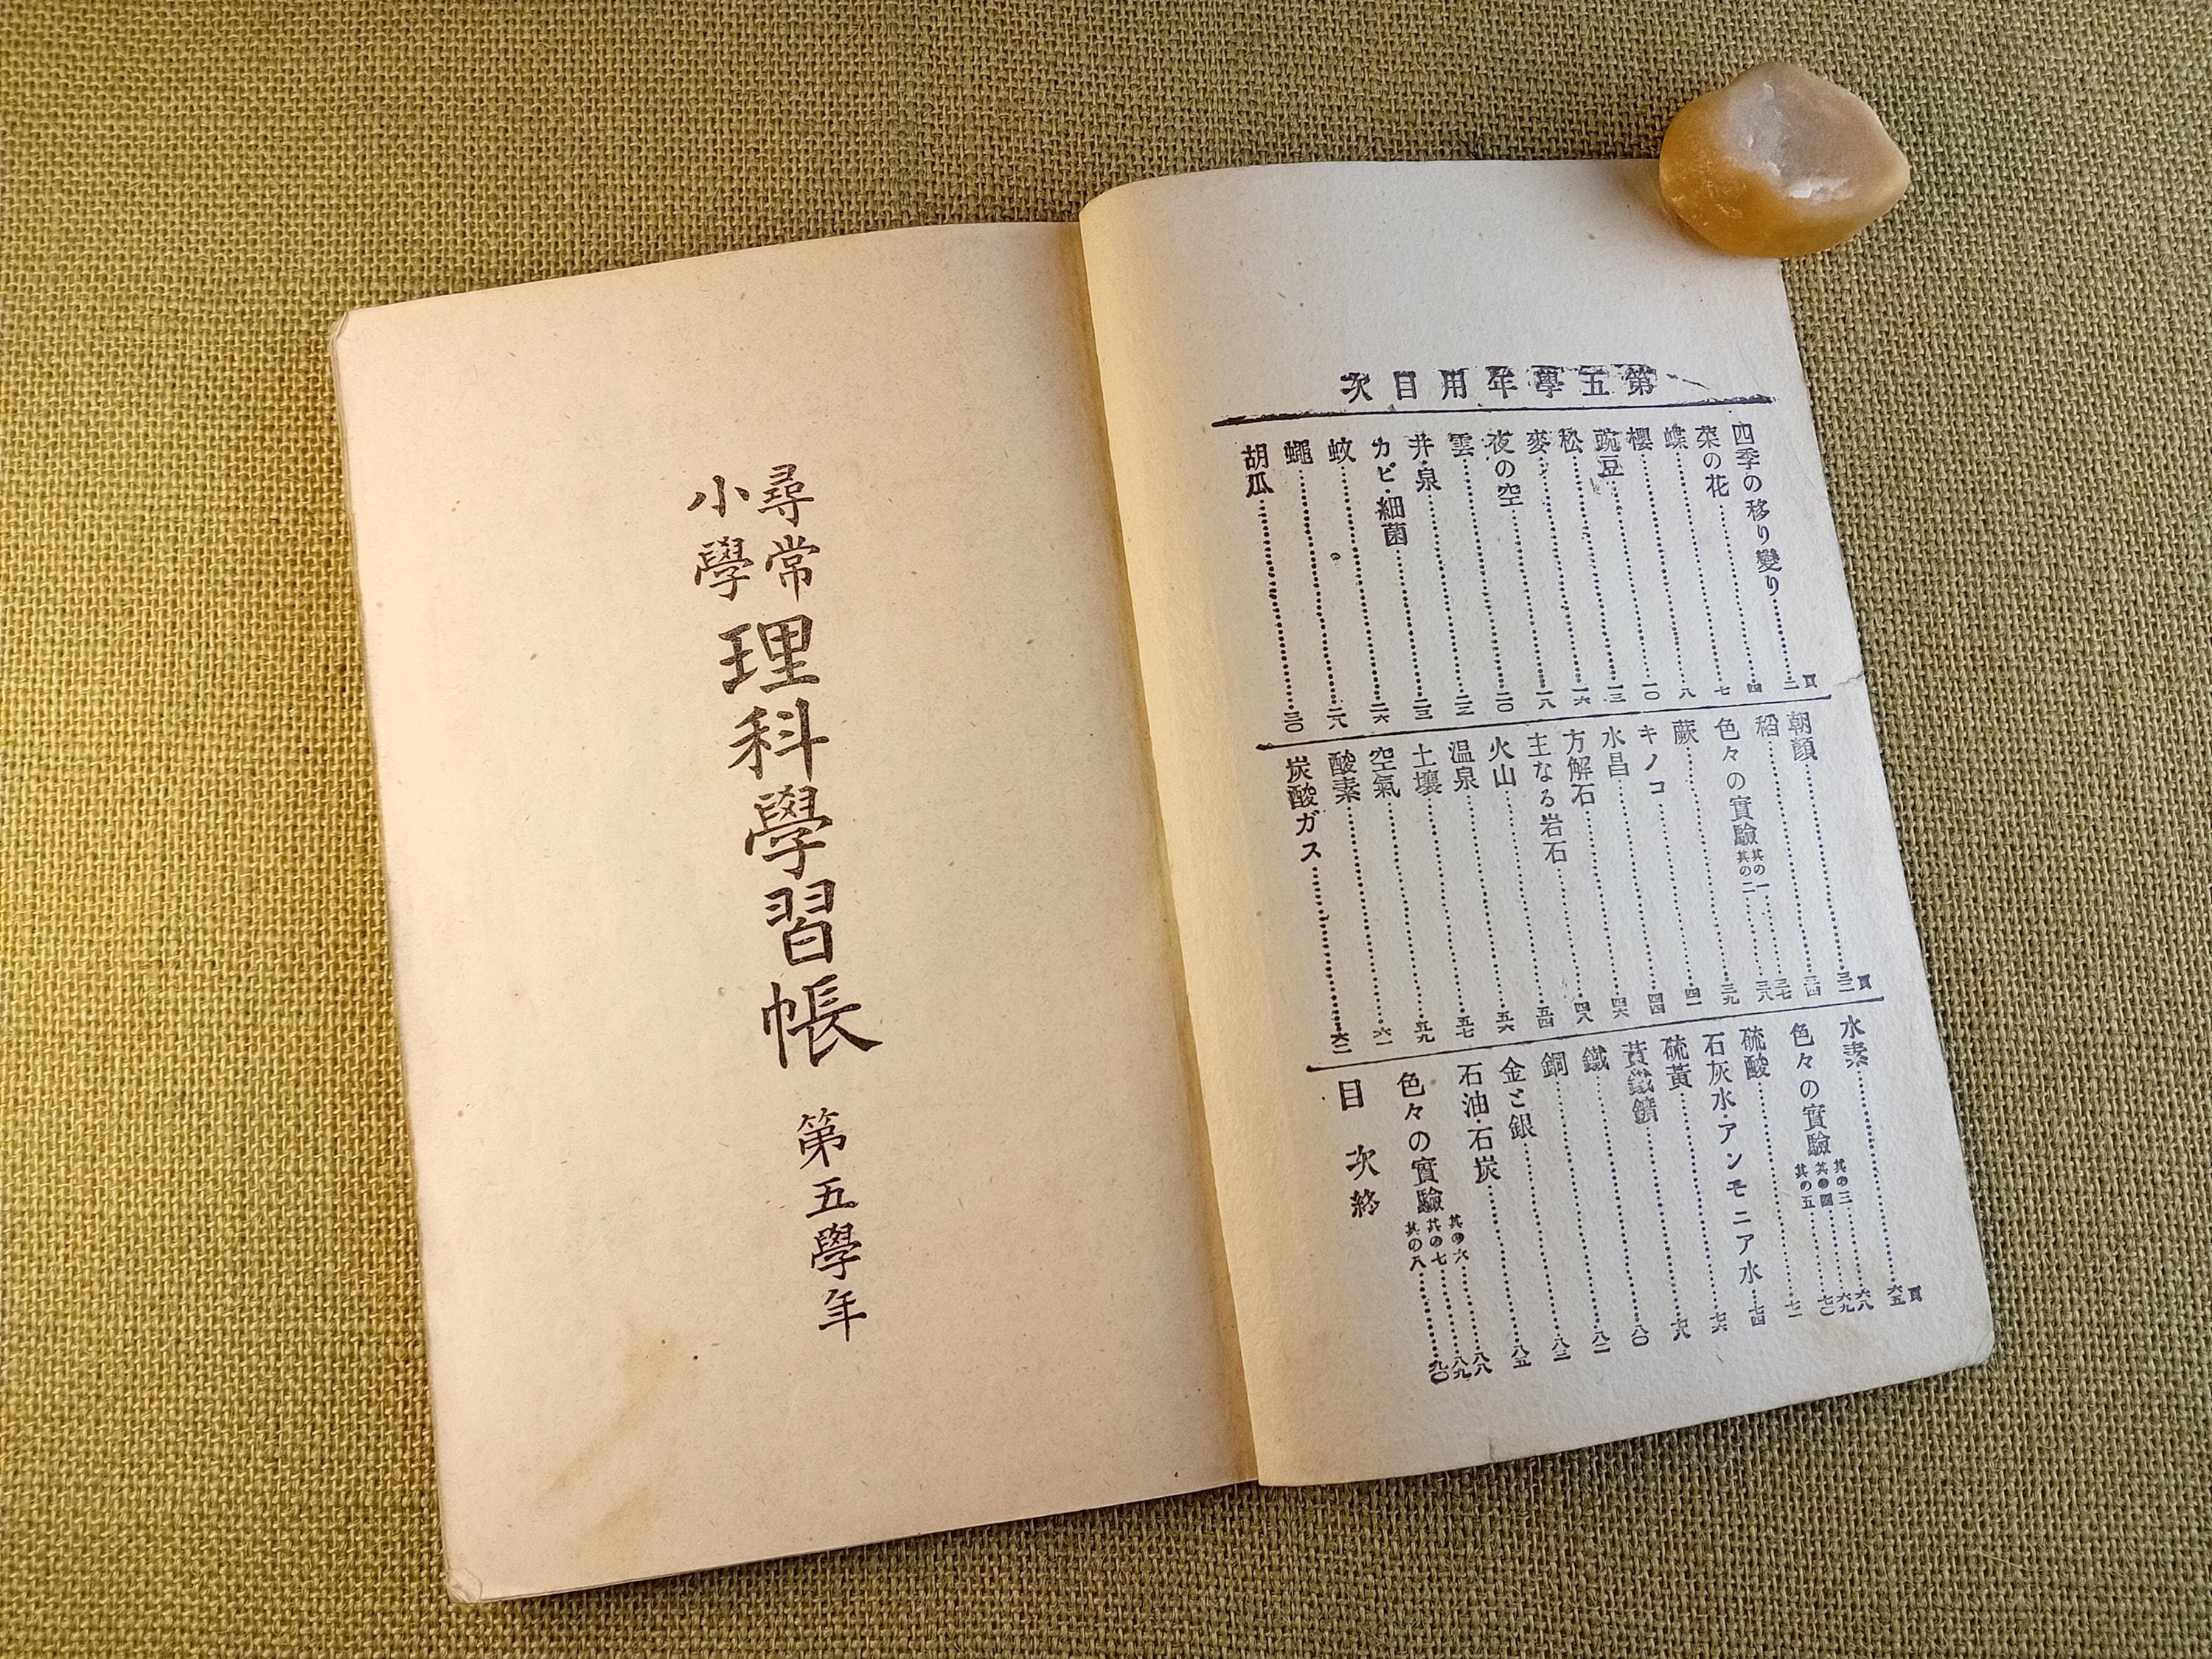 第五學年用目次
頁
四季の移り變り……二
菜の花……四
蝶……七
櫻……八
豌豆……一〇
松……一三
麥……一六
夜の空……一八
雲……二〇
井・泉……二二
カビ・細菌……二三
蚊……二六
蠅……二八
胡瓜……三〇
頁
朝顔……三二
稻……三四
色々の實驗 其の一……三七
其の二……三八
蕨……三九
キノコ……四一
水晶……四四
方解石……四六
主なる岩石……四八
火山……五四
温泉……五六
土壤……五七
空氣……五九
酸素……六一
炭酸ガス……六二
頁
水素……六五
色々の實驗 其の三……六八
其の四……六九
其の五……七〇
硫酸……七一
石灰水・アンモニア水……七四
硫黃……七六
黃鐵鑛……七八
鐵……八〇
銅……八二
金と銀……八三
石油・石炭……八五
色々の實驗 其の六……八八
其の七……八九
其の八……九〇
目次終
尋常小學理科學習帳 第五學年